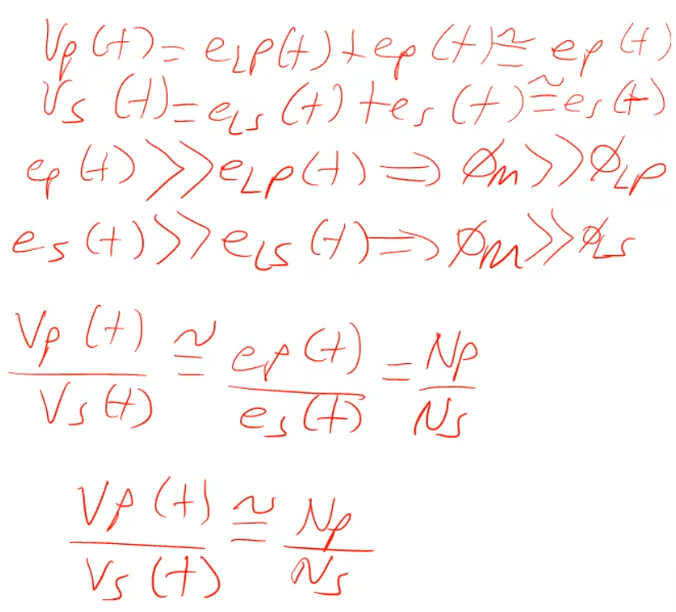 Vp(t) = eLp(t) + ep(t) ≅ ep(t)
Vs(t) = eLs(t) + es(t) ≅ es(t)
ep(t) >> eLp(t) ⇒ ØM >> ØLp
es(t) >> eLs(t) ⇒ ØM >> ØLs
Vp(t)/Vs(t) ≅ ep(t)/es(t) = Np/Ns
Vp(t)/Vs(t) ≅ Np/Ns